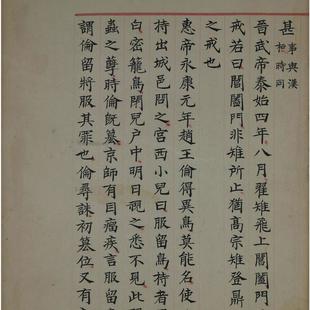 甚事與漢相時同
晉武帝泰始四年八月翟雉飛上閶闔門
戒若曰閶闔門非雉所止猶高宗雉登鼎
之戒也
惠帝永康元年趙王倫得異鳥莫能名使
持出城邑問之宮西小兒曰服留鳥持者
白密籠鳥閉兒户中明日視之悉不見此
蟲之孽時倫旣簒京師有目瘤疾言服留
謂倫留將服其罪也倫尋誅初簒位又有